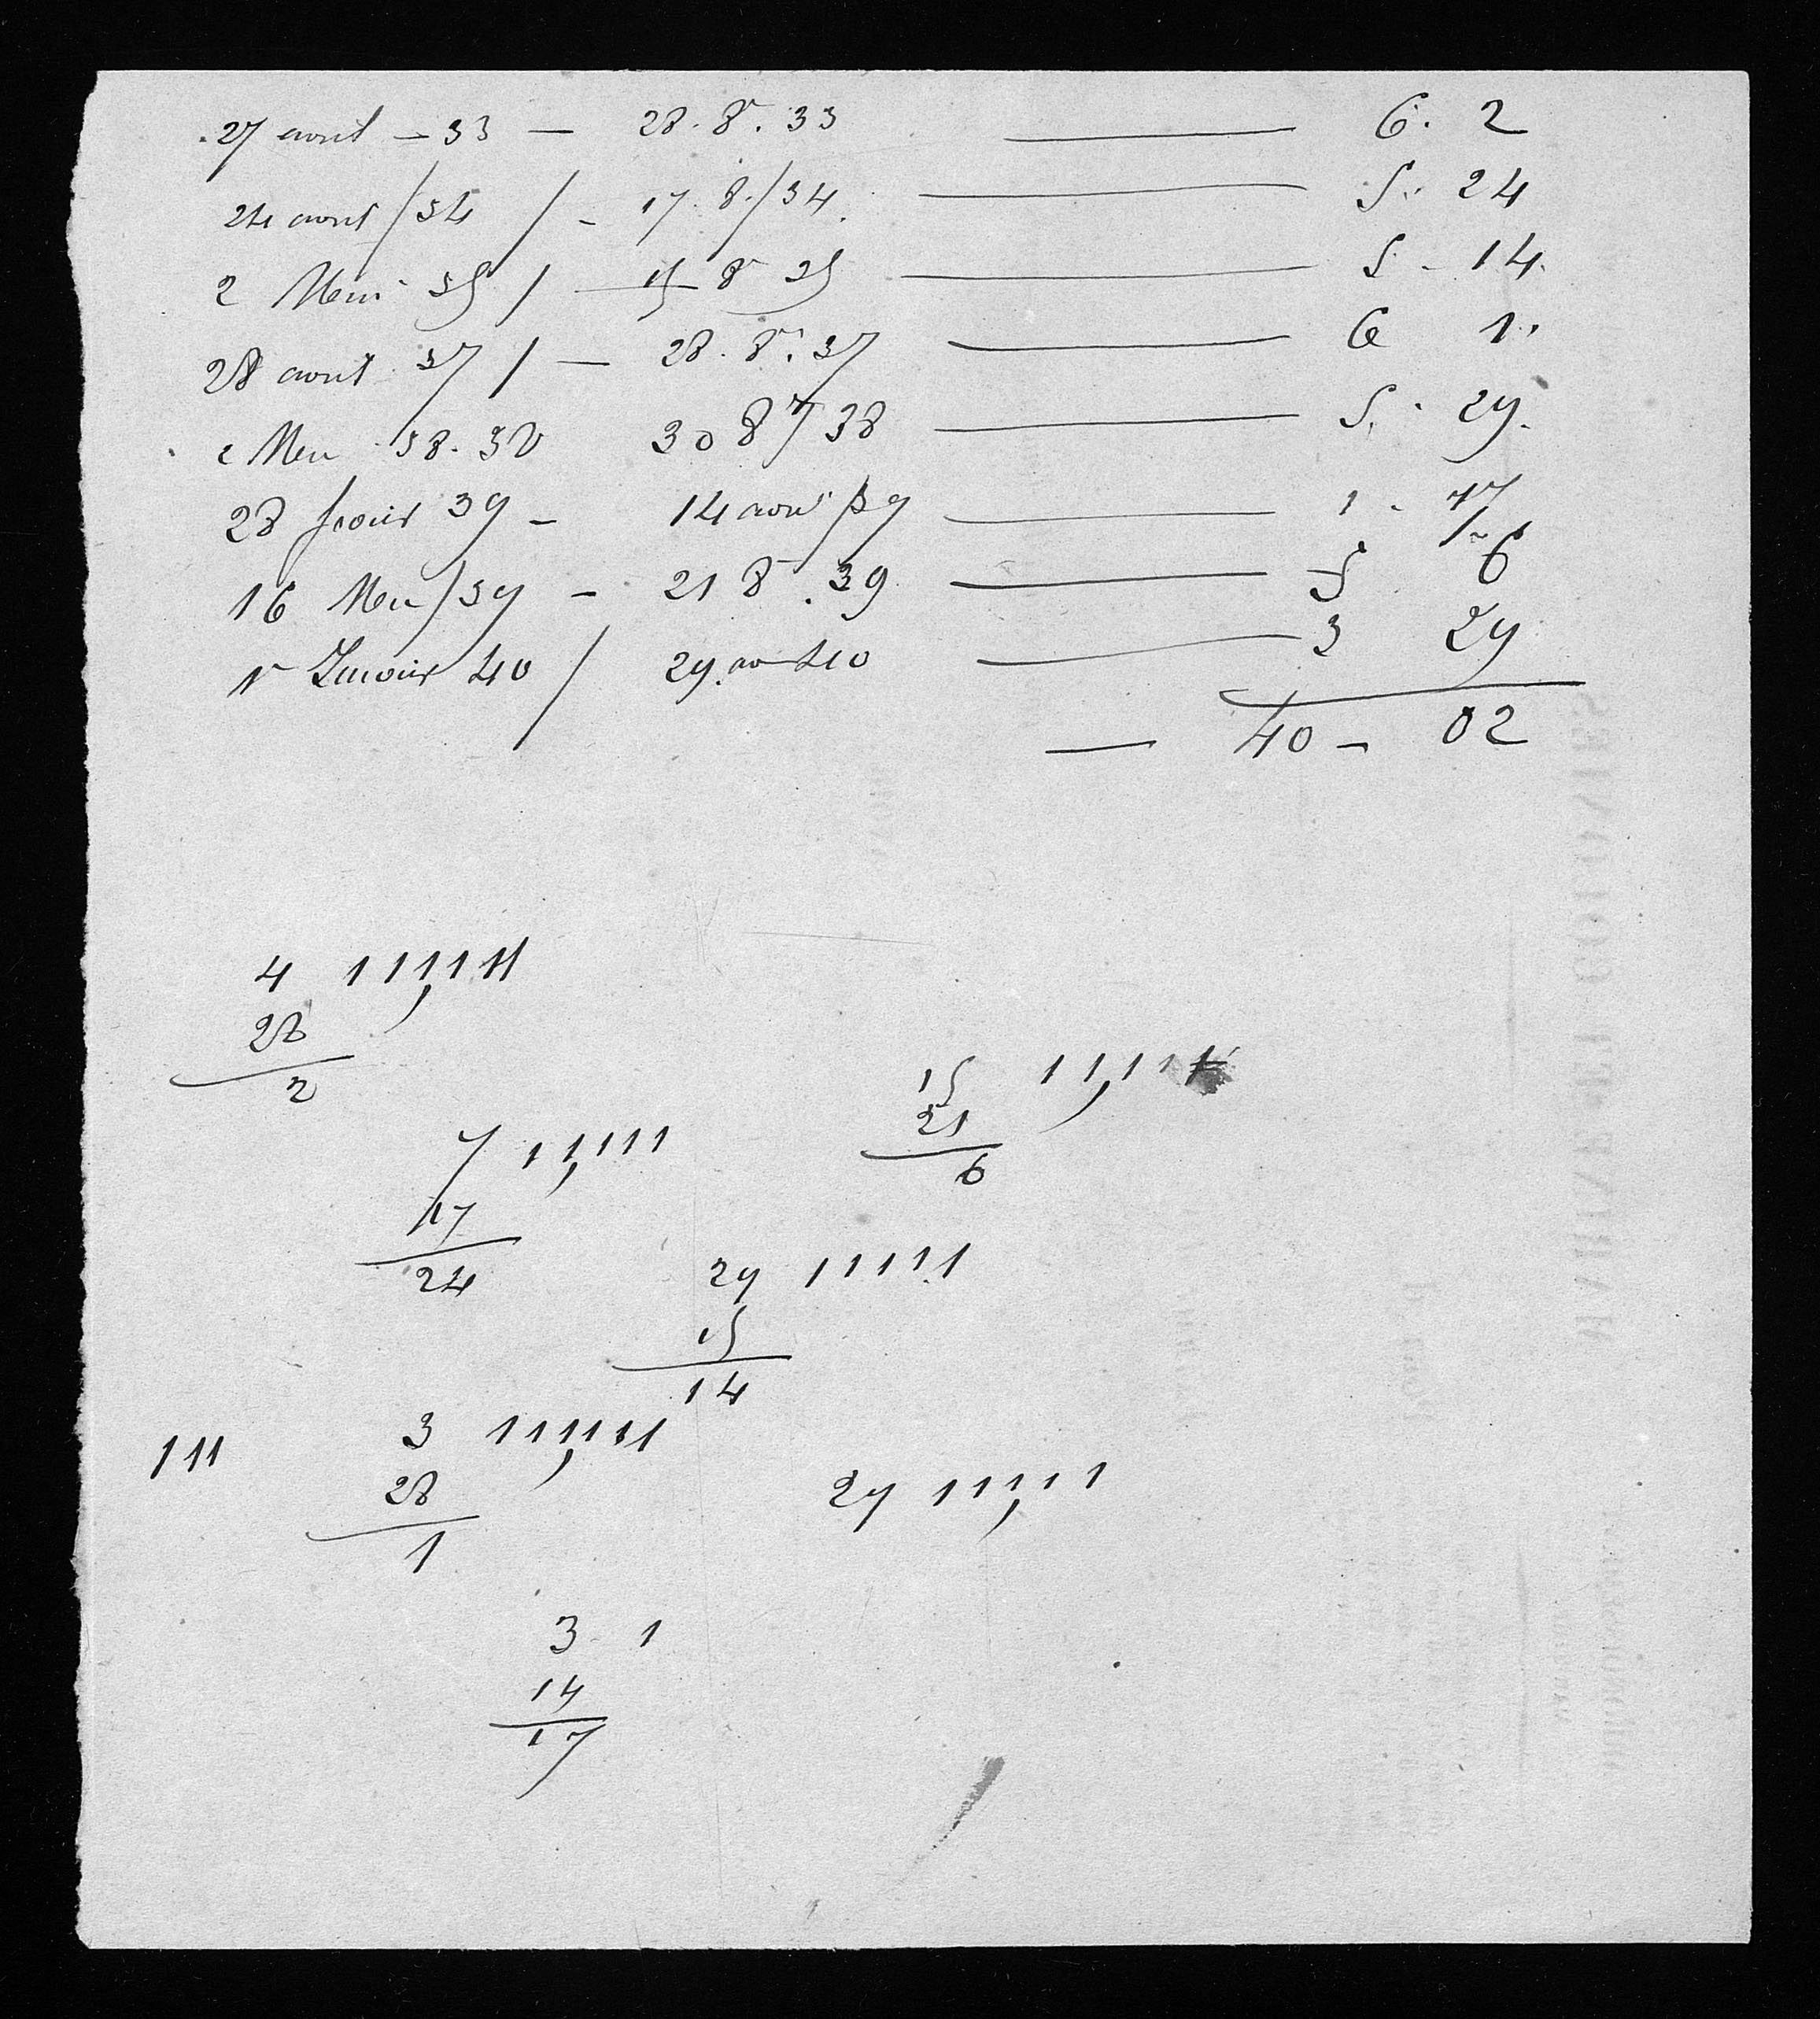 27 avril - 33 - 28. 8r. 33 — 6. 2
24 avril / 34 / - 17. 8. / 34. — 5. 24
2 Mai 35 / - 15 8r 35 — 5 - 14.
28 avril 37 / - 28. 8r. 37 — 6 1.
2 Mai 38. 38 30 8r 38 — 5. 29.
28 fevrier 39 - 14 avril 39 — 1 - 17
16 Mai / 39 - 21 8r. 39 — 5 6
1r Janvier 40 / 29. av 40 — 3 29
— 40 - 02
4 1 1 1, 1 1 1
28
2
15 1 1, 1 1 1
21
6
7 1 1, 1 1 1
17
24
29 1 1 1 1 1
15
14
111 3 1 1 1, 1 1 1
28
1
29 1 1 1, 1 1
3 1
14
17